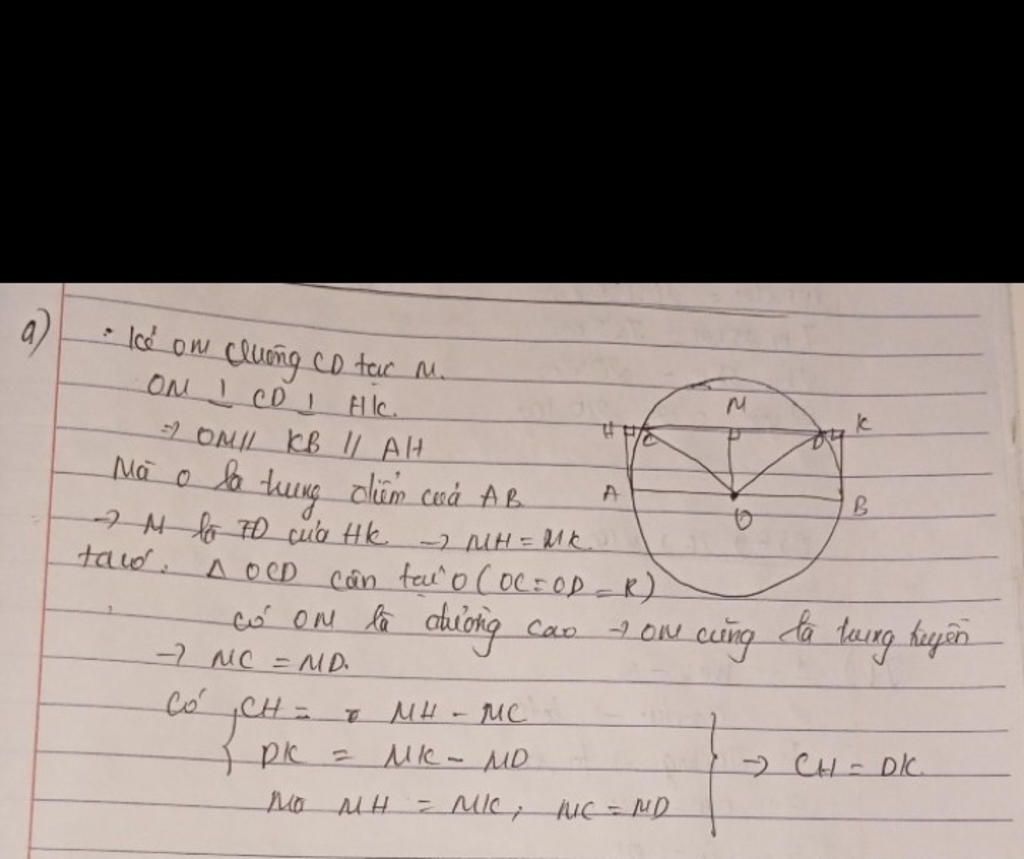 a)
• Kẻ OM vuông CD tại M.
OM ⊥ CD ⊥ HK.
⇒ OM // KB // AH
Mà O là trung điểm của AB
→ M là TĐ của HK → MH = MK.
ta có: Δ OCD cân tại O (OC = OD = R)
có OM là đường cao → OM cũng là trung tuyến
→ MC = MD.
Có { CH = MH - MC
DK = MK - MD } → CH = DK.
Mà MH = MK; MC = MD
M
H C D K
A B
O